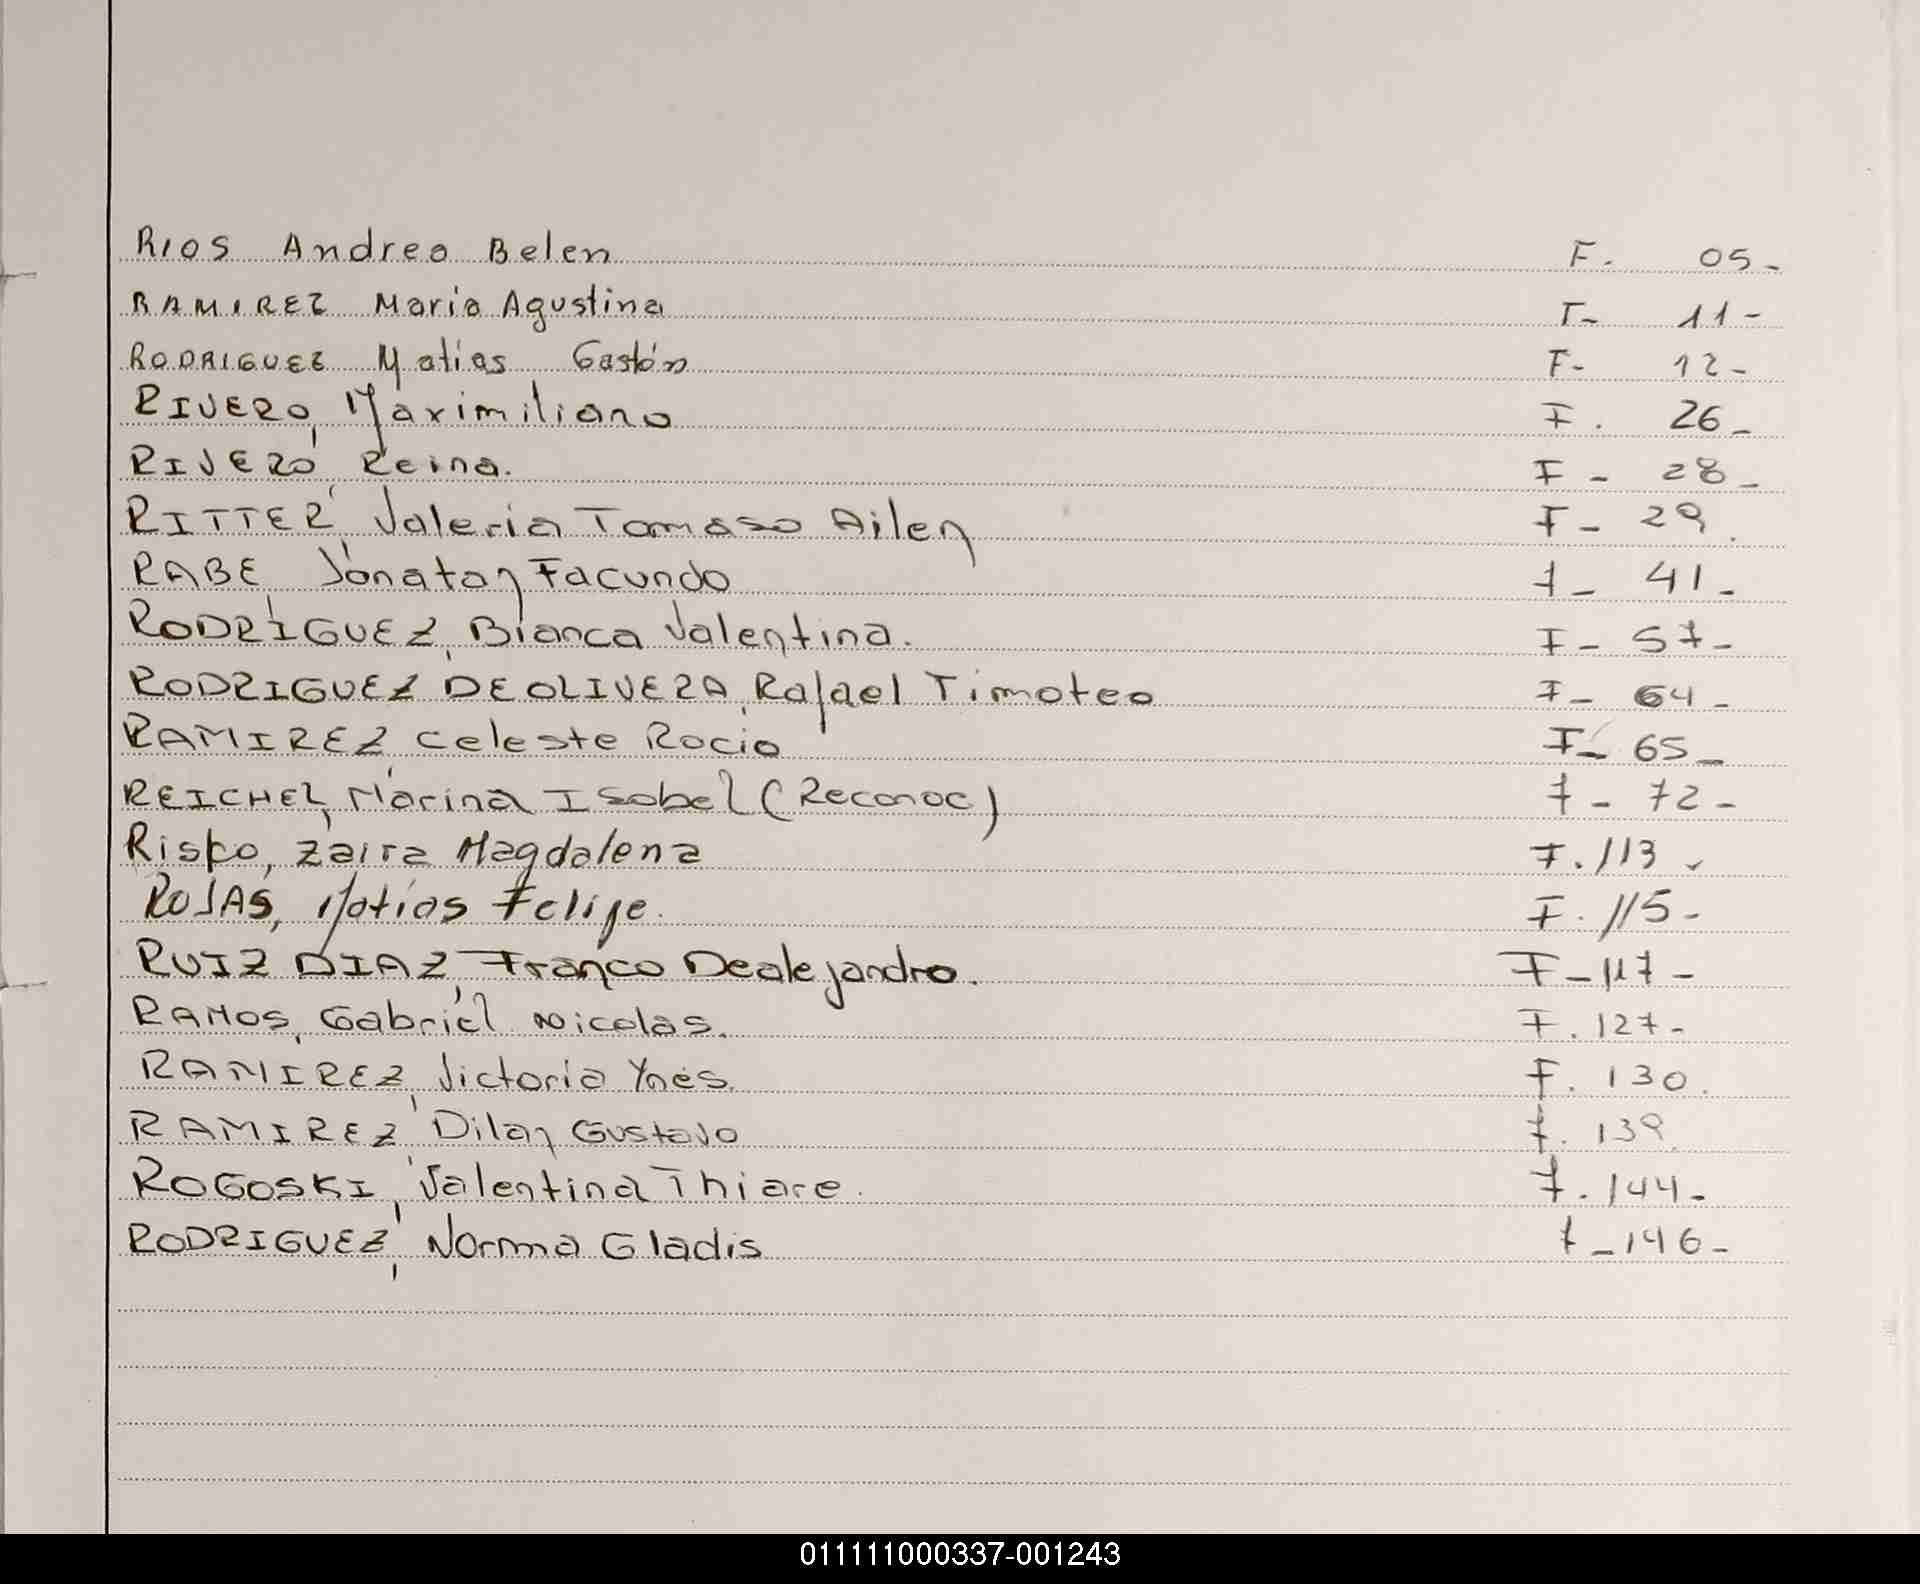 RIOS Andrea Belen F. 05-
RAMIREZ Maria Agustina F- 11-
RODRIGUEZ Matias Gastón F- 12-
RIVERO, Maximiliano F. 26-
RIVERO, Reina. F- 28-
RITTER, Valeria Tomaso Ailen F- 29.
RABE Jonatan Facundo F- 41-
RODRIGUEZ, Bianca Valentina. F- 57-
RODRIGUEZ DE OLIVERA, Rafael Timoteo F- 64-
RAMIREZ Celeste Rocio F- 65-
REICHEL, Marina Isabel (Reconoc) F- 72-
Risko, Zaira Magdalena F. 113-
ROJAS, Matias Felipe. F. 115-
RUIZ DIAZ, Franco Dealejandro. F-117-
RAMOS, Gabriel Nicolas. F. 127-
RAMIREZ, Victoria Ynes. F. 130.
RAMIREZ, Dilan Gustavo F. 139.
ROGOSKI, Valentina Thiare. F. 144-
RODRIGUEZ, Norma Gladis F-146-
011111000337-001243